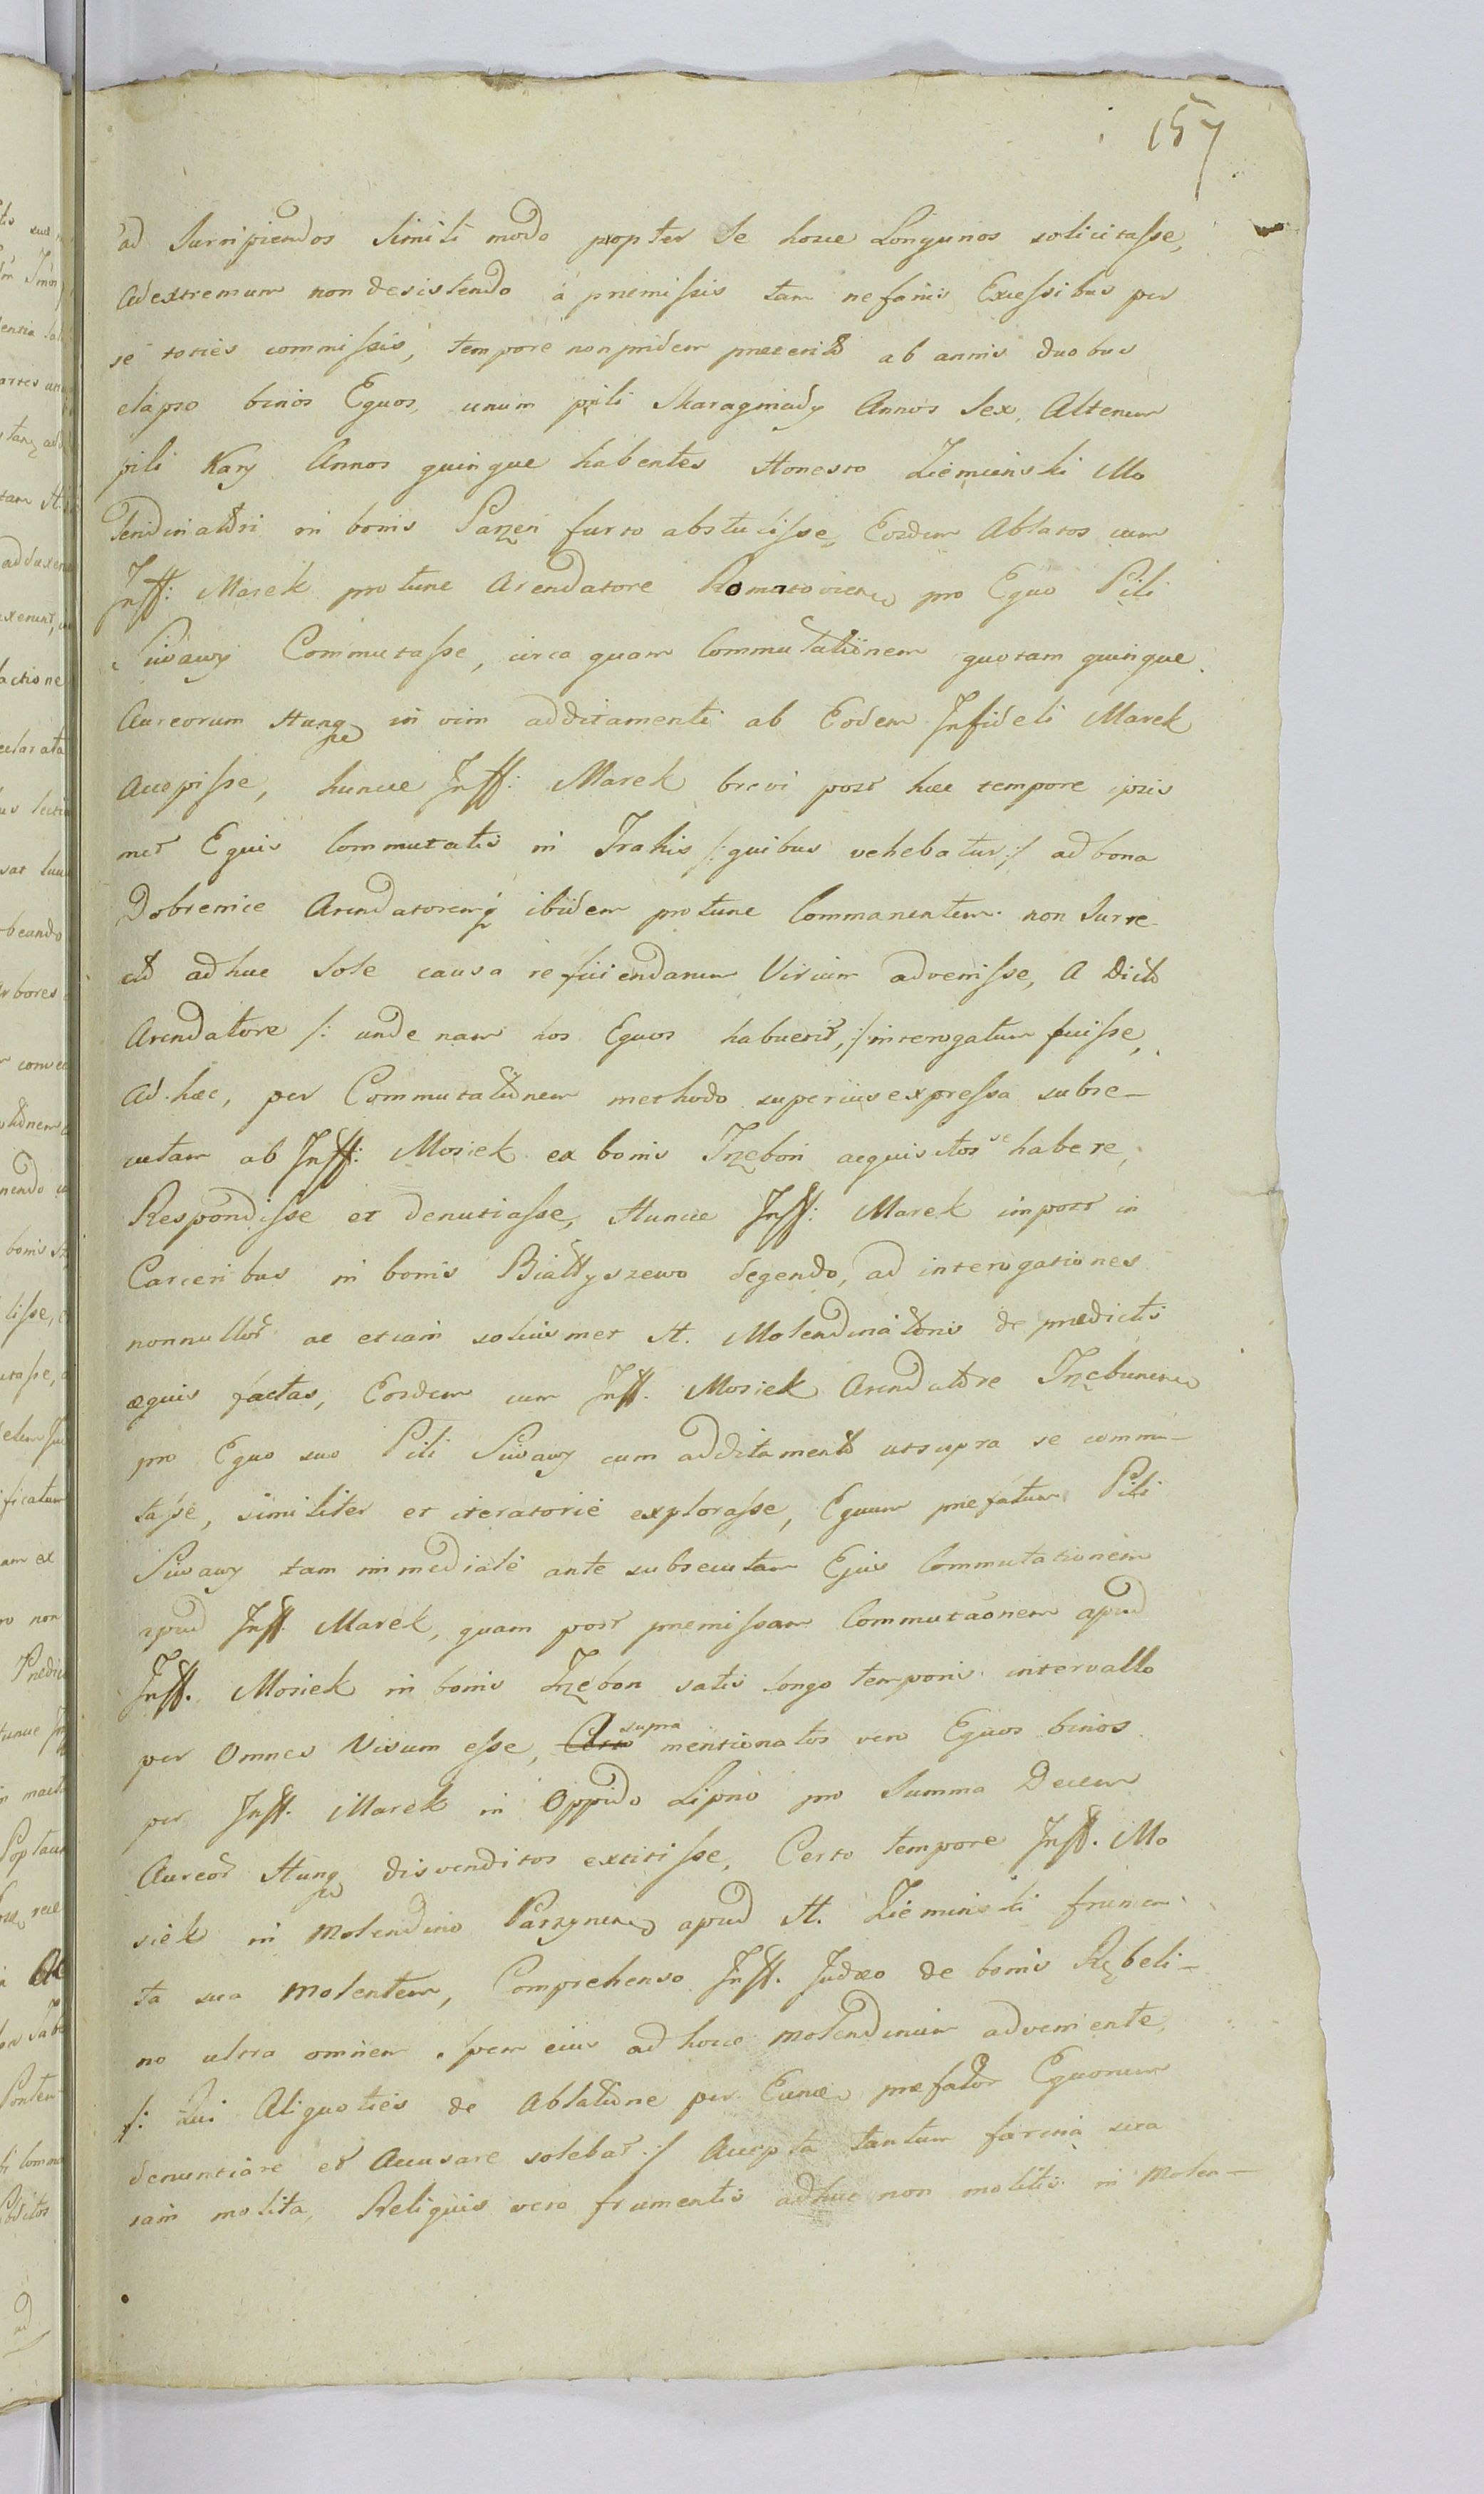 157
ad Surripiendos simili modo propter se hosce Longurios solicitasse,
Adextremum non desistendo á premissis tam nefariis Excessibus per
se toties commissis, tempore non pridem praeterito ab annis duobus
elapso binos Equos, unum pili Skarogniady Annos Sex, Alterum
pili Kary Annos quinque habentes Honesto Ziemienski Mo
lendinatori in bonis Parzen furto abstulisse, Eosdem Ablatos cum
Inff: Marek pro tunc Arendatore pro Equo Pili
Siwawy Commutasse, circa quam Commutationem quotam quinque
Aureorum Hung in vim additamenti ab Eodem Infideli Marek
Accepisse, huncce Inff: Marek brevi post hec tempore ipsis
met Equis Commutatis in Trahis /: quibus vehebatur :/ ad bona
Dobrenice Arendatoremq ibidem protunc Commanentem non Surre
cto adhuc Sole causa reficiendarum Virium advenisse, A Dicto
Arendatore /: unde nam hos Equos habuerit, :/ interogatum fuisse,
Ad hæc, per Commutationem methodo superius expressa subse-
cutam ab Inff: Mosiek ex bonis Trzebon acquisitos se habere,
Respondisse et denutiasse, Huncce Inff: Marek in post in
Carceribus in bonis Białłyszewo degendo, ad interogationes
nonnullor ac etiam soliusmet H. Molendinatoris de predictis
equis factas, Eosdem cum Inff. Mosiek Arendatore
pro Equo suo Pili Siwawy cum additamento utsupra se commu-
tasse, similiter et iteratorie explorasse, Equum prefatum Pili
Siwawy tam immediatè ante subsecutam Ejus Commutationem
apud Inff. Marek, quam post premissam Commutaonem apud
Inff. Mosiek in bonis Trzebon satis longo temporis intervallo
per Omnes Visum esse, supra mentionatos vero Equos binos
per Inff. Marek in Oppido Lipno pro Summa Decem
Aureor Hung disvenditos extitisse, Certo tempore Inff. Mo
siek in Molendino apud H. Zieminski frumen
ta sua Molentem, Comprehenso Inff. Judæo de bonis Rębeli-
no ultra omnem spem eius ad hocce Molendinum adveniente,
/: Qui Aliquoties de Ablatione per Eunce prefator Equorum
denuntiare et Accusare solebat :/ Accepta tantum farina sua
iam molita, Reliquis vero frumentis adhuc non molitis in Molen-